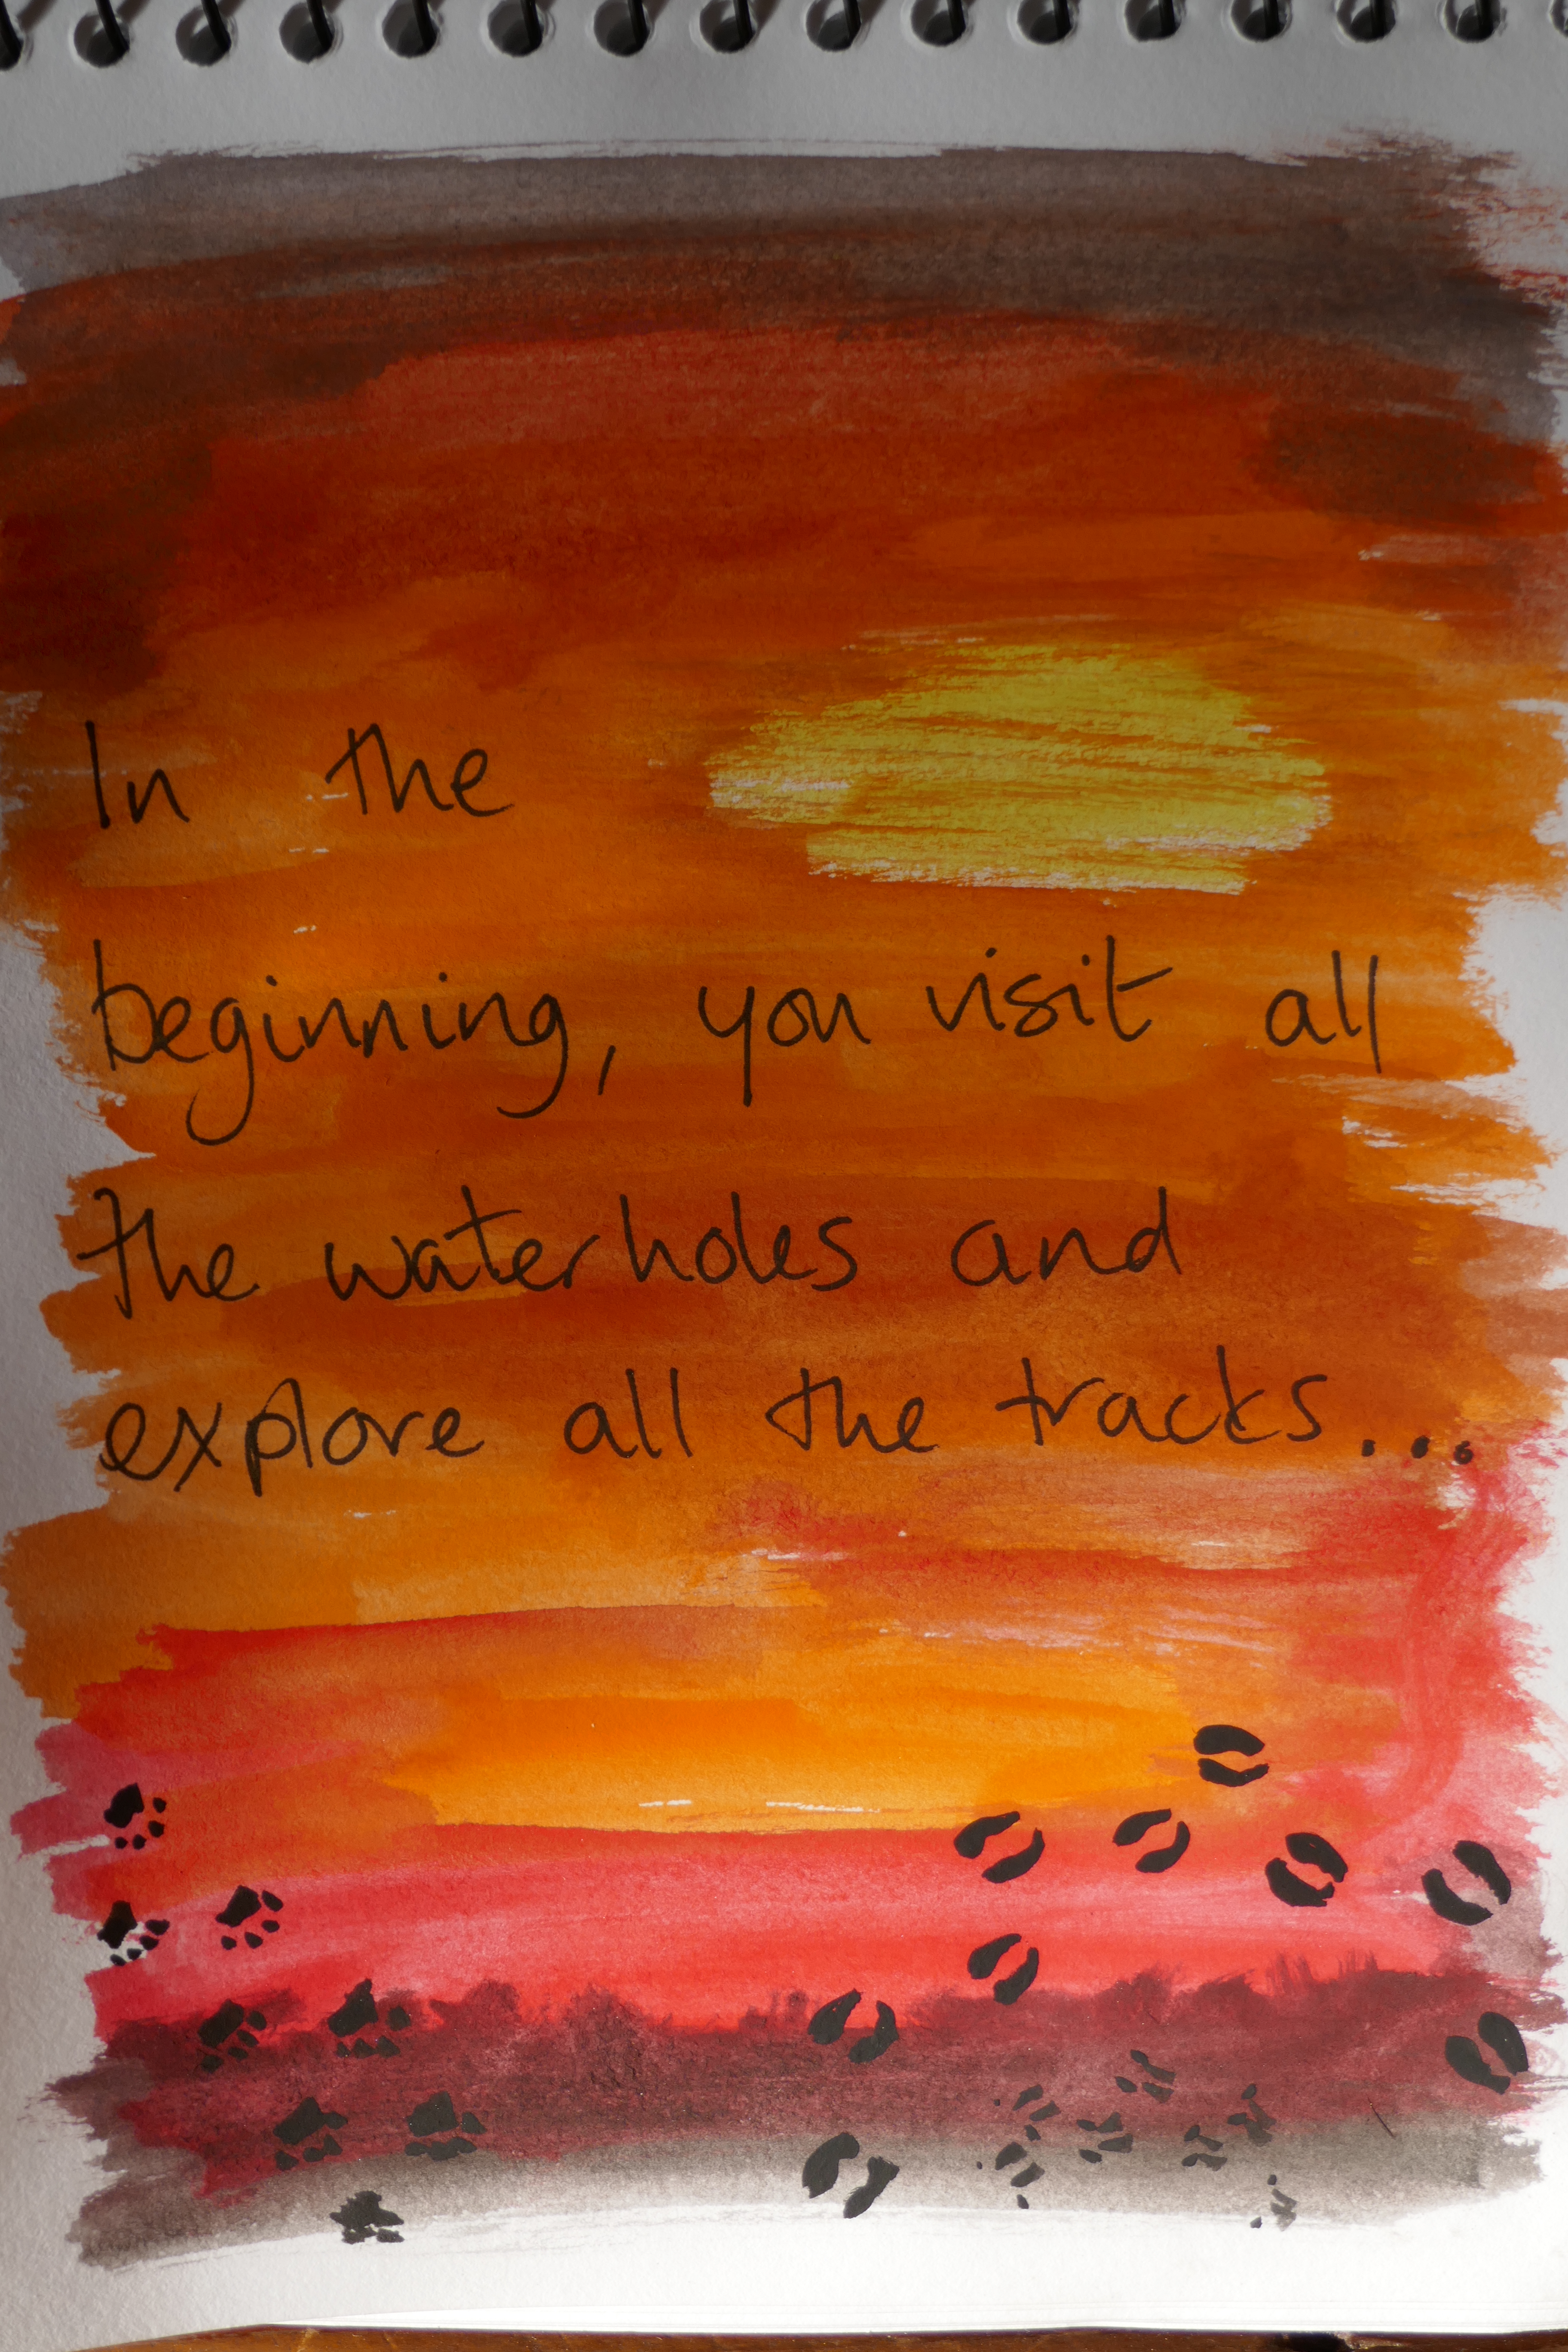 In the
beginning, you visit all
the waterholes and
explore all the tracks...